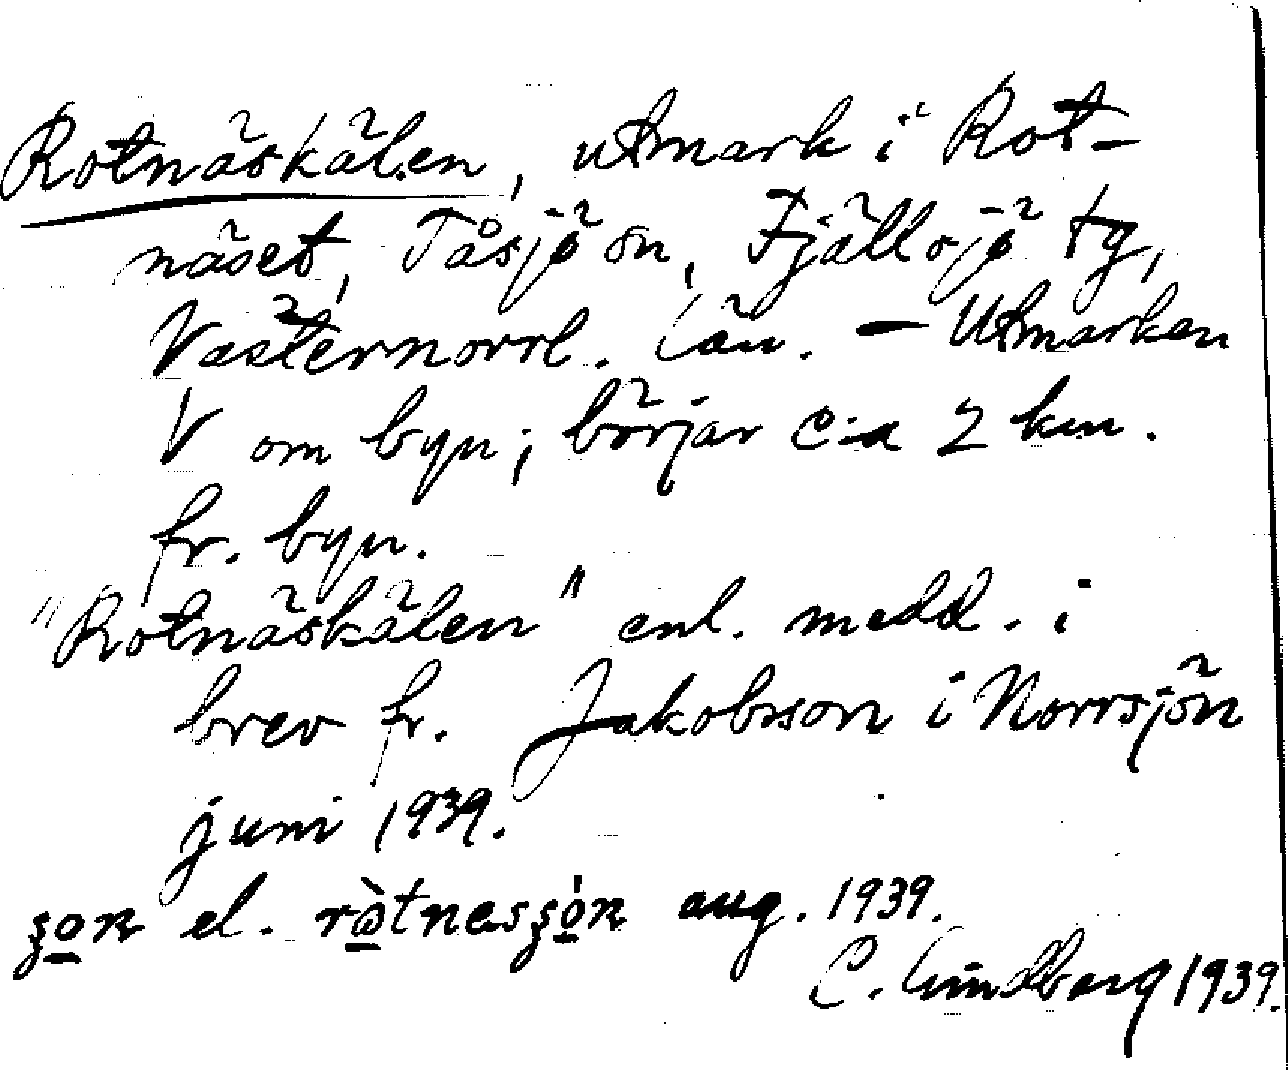 Rotnäskälen, utmark i Rot-
näset, Tåsjö sn, Fjällsjö tg,
Västernorrl. län. — Utmarken
V om byn; börjar c:a 2 km.
fr. byn.
"Rotnäskälen" enl. medd. i
brev fr. Jakobsson i Norrsjön
juni 1939.
el. aug. 1939.
C. Lindberg 1939.